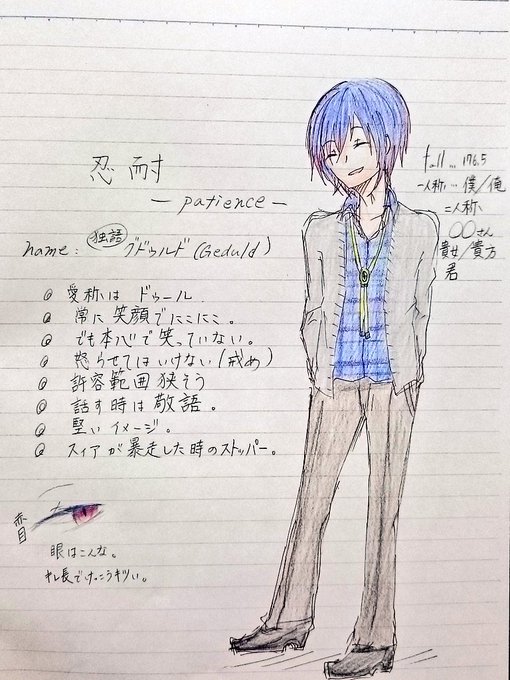 忍耐
—patience—
name: 独語 グドゥルド(Geduld)
愛称は ドゥール.
常に笑顔でにこにこ。
でも本心で笑っていない。
怒らせてはいけない(戒め)
許容範囲狭そう
話す時は敬語。
堅いイメージ。
スィアが暴走した時のストッパー。
tall... 176.5
一人称…僕/俺
二人称、
〇〇さん
貴女/貴方
君
赤目
眼はこんな。
キレ長でけっこうキツい。